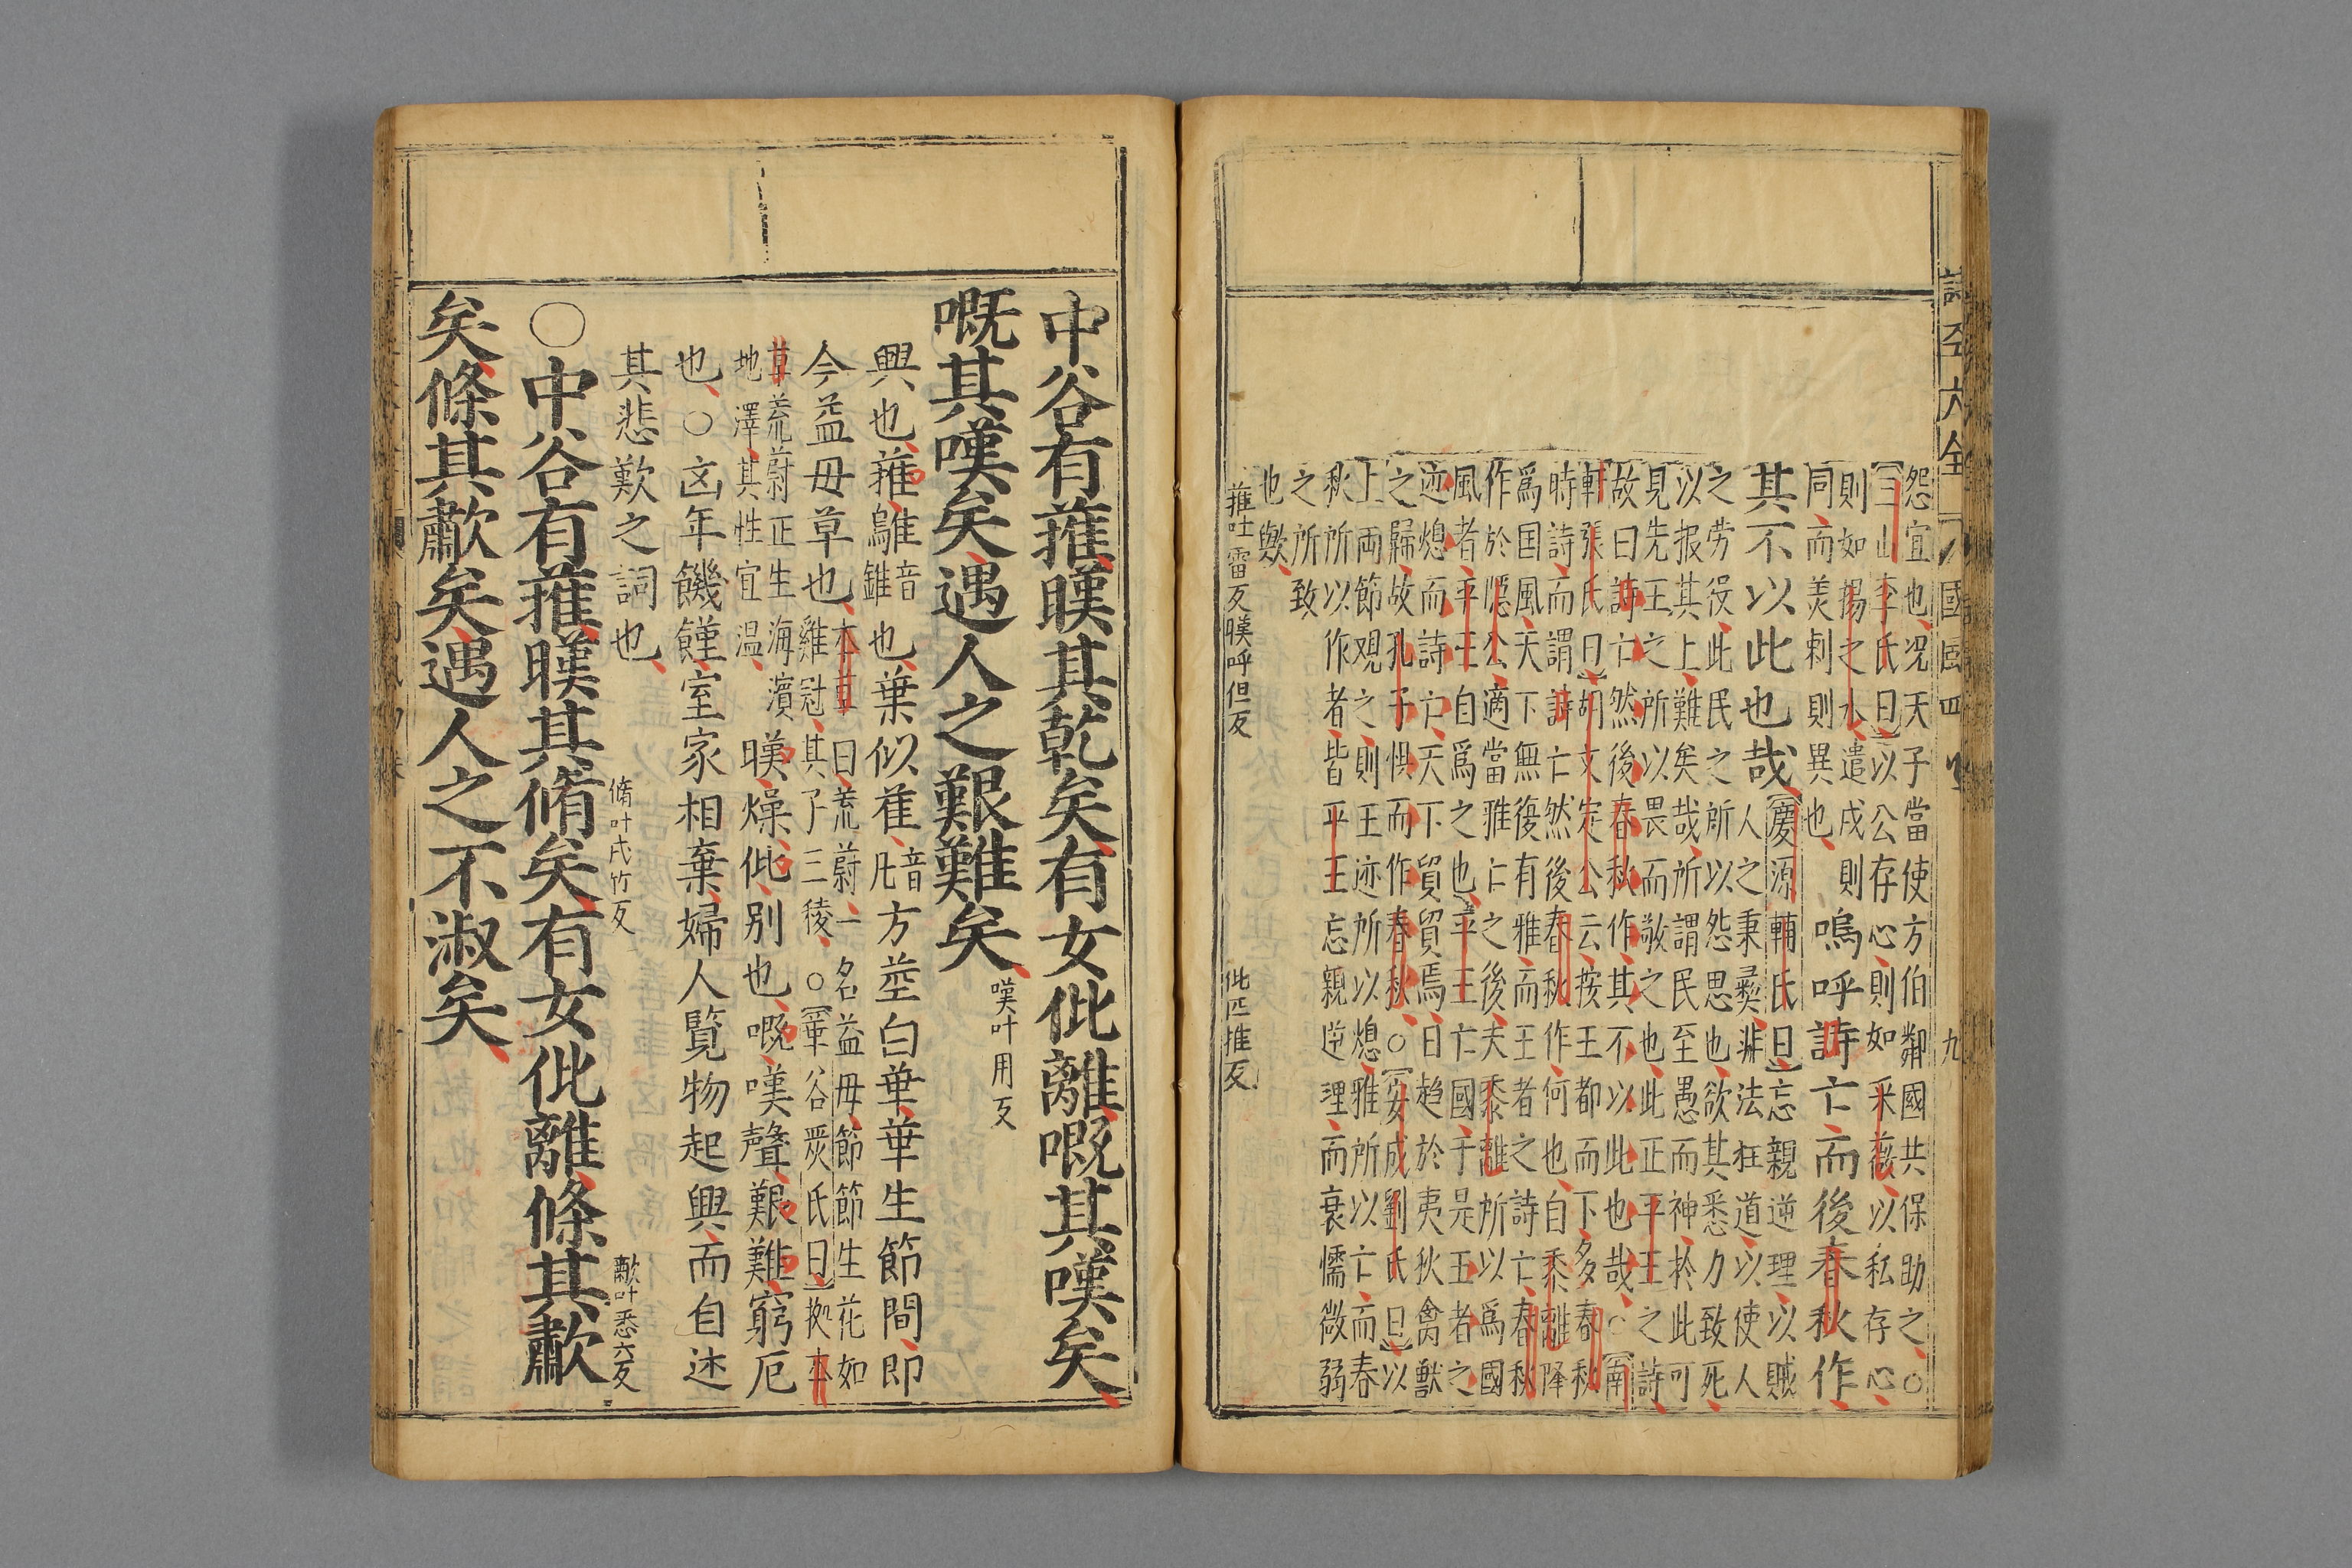 怨宜也况天子當使方伯鄰國共保助之○
三山李氏曰以公存心則如采薇以私存心
則如揚之水遣戍則
同而美刺則異也
嗚呼詩亡而後春秋作
其不以此也哉
慶源輔氏曰忘親逆理以賊
人之秉彝非法枉道以使人
之劳役此民之所以怨思也欲其悉力致死
以报其上難矣哉所謂民至愚而神於此可
見先王之所以畏而敬之也此正平王之詩
故曰詩亡然後春秋作其不以此也哉○南
軒張氏曰胡文定公云按王都而下多春秋
時詩而謂詩亡然後春秋作何也自黍離降
爲国風天下無復有雅而王者之詩亡春秋
作於隱公適當雅亡之後夫黍離所以爲國
風者平王自爲之也平王亡國于是王者之
迹熄而詩亡天下貿貿焉日趋於夷狄禽獸
之歸故孔子惧而作春秋○安成劉氏曰以
上两節观之則王迹所以熄雅所以亡而春
秋所以作者皆平王忘親逆理而衰懦微弱
之所致
也歟
蓷吐雷反暵呼但反
仳匹推反
中谷有蓷暵其乾矣有女仳離嘅其嘆矣
嘅其嘆矣遇人之艱難矣
嘆叶用反
興也蓷鵻音錐也葉似萑音凡方莖白華華生節間即
今益母草也
本草曰荒蔚一名益母節節生花如
雞冠其子三稜○華谷嚴氏曰拠本
草荒蔚正生海濱
地澤其性宜温
暵燥仳别也嘅嘆聲艱難窮厄
也○凶年饑饉室家相棄婦人覽物起興而自述
其悲歎之詞也
脩叶式竹反
歗叶悉六反
○中谷有蓷暵其脩矣有女仳離條其歗
矣條其歗矣遇人之不淑矣
國風四
九